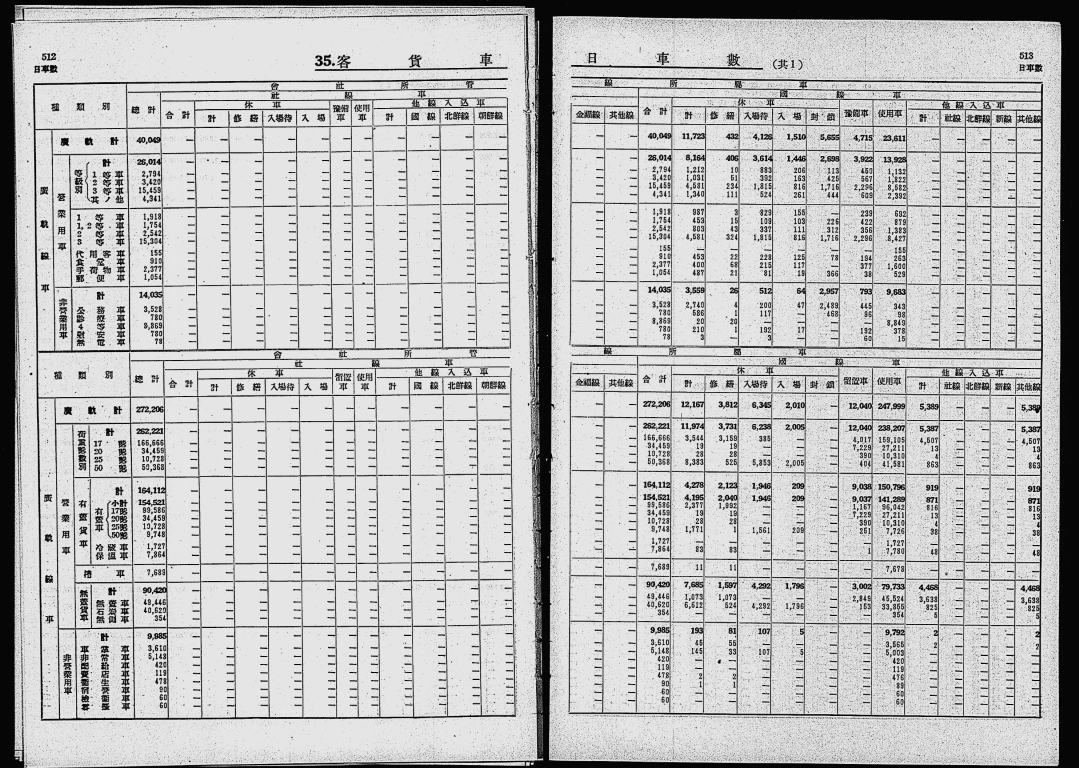 512
日車數
35.客 貨 車
日 車 數 (其1)
513
日車數
會 社 所 管
社 線 車
種 類 別 總計 合計 休車 豫備車 使用車 他線入込車
計 修繕 入場待 入場 計 國線 北鮮線 朝鮮線
線 所 屬 車
國 線 車
金福線 其他線 合計 休車 豫備車 使用車 他線入込車
計 修繕 入場待 入場 封鎖 計 社線 北鮮線 新線 其他線
廣軌計 40,049 — — 40,049 11,723 432 4,126 1,510 5,655 4,715 23,611
廣軌線車
營業用車
計 26,014 26,014 8,164 406 3,614 1,446 2,698 3,922 13,928
等級別
1等車 2,794 2,794 1,212 10 883 206 113 450 1,132
2等車 3,420 3,420 1,031 51 392 163 425 567 1,822
3等車 15,459 15,459 4,581 234 1,815 816 1,716 2,296 8,582
其ノ他 4,341 4,341 1,340 111 524 261 444 609 2,392
1等車 1,918 1,918 987 3 829 155 — 239 692
1,2等車 1,754 1,754 453 15 109 103 226 422 879
2等車 2,542 2,542 803 43 337 111 312 356 1,383
3等車 15,304 15,304 4,581 324 1,815 816 1,716 2,296 8,427
代用客車 155 155 — 155
食堂車 910 910 453 22 228 125 78 194 263
手荷物車 2,377 2,377 400 68 215 117 — 377 1,600
郵便車 1,054 1,054 487 21 81 19 366 38 529
非營業用車
計 14,035 14,035 3,559 26 512 64 2,957 793 9,683
公務車 3,528 3,528 2,740 4 200 47 2,489 445 343
診療車 780 780 586 1 117 — 468 96 98
8,869 8,869 20 20 — — — — 8,849
780 780 210 1 192 17 — 192 378
78 78 3 — 3 — — 60 15
會 社 所 管
社 線 車
種 類 別 總計 合計 休車 留置車 使用車 他線入込車
計 修繕 入場待 入場 計 國線 北鮮線 朝鮮線
線 所 屬 車
國 線 車
金福線 其他線 合計 休車 留置車 使用車 他線入込車
計 修繕 入場待 入場 封鎖 計 社線 北鮮線 新線 其他線
廣軌計 272,206 272,206 12,167 3,812 6,345 2,010 — 12,040 247,999 5,389 — — — 5,389
廣軌線車
營業用車
計 262,221 262,221 11,974 3,731 6,238 2,005 — 12,040 238,207 5,387 — — — 5,387
17瓲 166,666 166,666 3,544 3,159 385 — — 4,017 159,105 4,507 — — — 4,507
20瓲 34,459 34,459 19 19 — — — 7,229 27,211 13 — — — 13
25瓲 10,728 10,728 28 28 — — — 390 10,310 4 — — — 4
50瓲 50,368 50,368 8,383 525 5,853 2,005 — 404 41,581 863 — — — 863
有蓋貨車
計 164,112 164,112 4,278 2,123 1,946 209 — 9,038 150,796 919 — — — 919
小計 154,521 154,521 4,195 2,040 1,946 209 — 9,037 141,289 871 — — — 871
17瓲 99,586 99,586 2,377 1,992 — 1,167 96,042 816 — — — 816
20瓲 34,459 34,459 19 19 — — — 7,229 27,211 13 — — — 13
25瓲 10,728 10,728 28 28 — — — 390 10,310 4 — — — 4
50瓲 9,748 9,748 1,771 1 1,561 209 — 251 7,726 38 — — — 38
冷藏車 1,727 1,727 — — — — — — 1,727
保溫車 7,864 7,864 83 83 — — — 1 7,780 48 — — — 48
槽車 7,689 7,689 11 11 — — — — 7,678
無蓋貨車
計 90,420 90,420 7,685 1,597 4,292 1,796 — 3,002 79,733 4,468 — — — 4,468
無蓋車 49,446 49,446 1,073 1,073 — — — 2,849 45,524 3,638 — — — 3,638
石炭車 40,620 40,620 6,612 524 4,292 1,796 — 153 33,855 825 — — — 825
354 354 — — — — — — 354 5 — — — 5
非營業用車
計 9,985 9,985 193 81 107 5 — — 9,792 2 — — — 2
3,610 3,610 45 — — — 3,565 2 — — — 2
非常車 5,148 5,148 145 33 107 5 — — 5,003
420 420 — — — — — — 420
119 119 — — — — — — 119
478 478 2 2 — — — — 476
90 90 1 1 — — — — 89
60 60 — — — — — — 60
60 60 — — — — — — 60